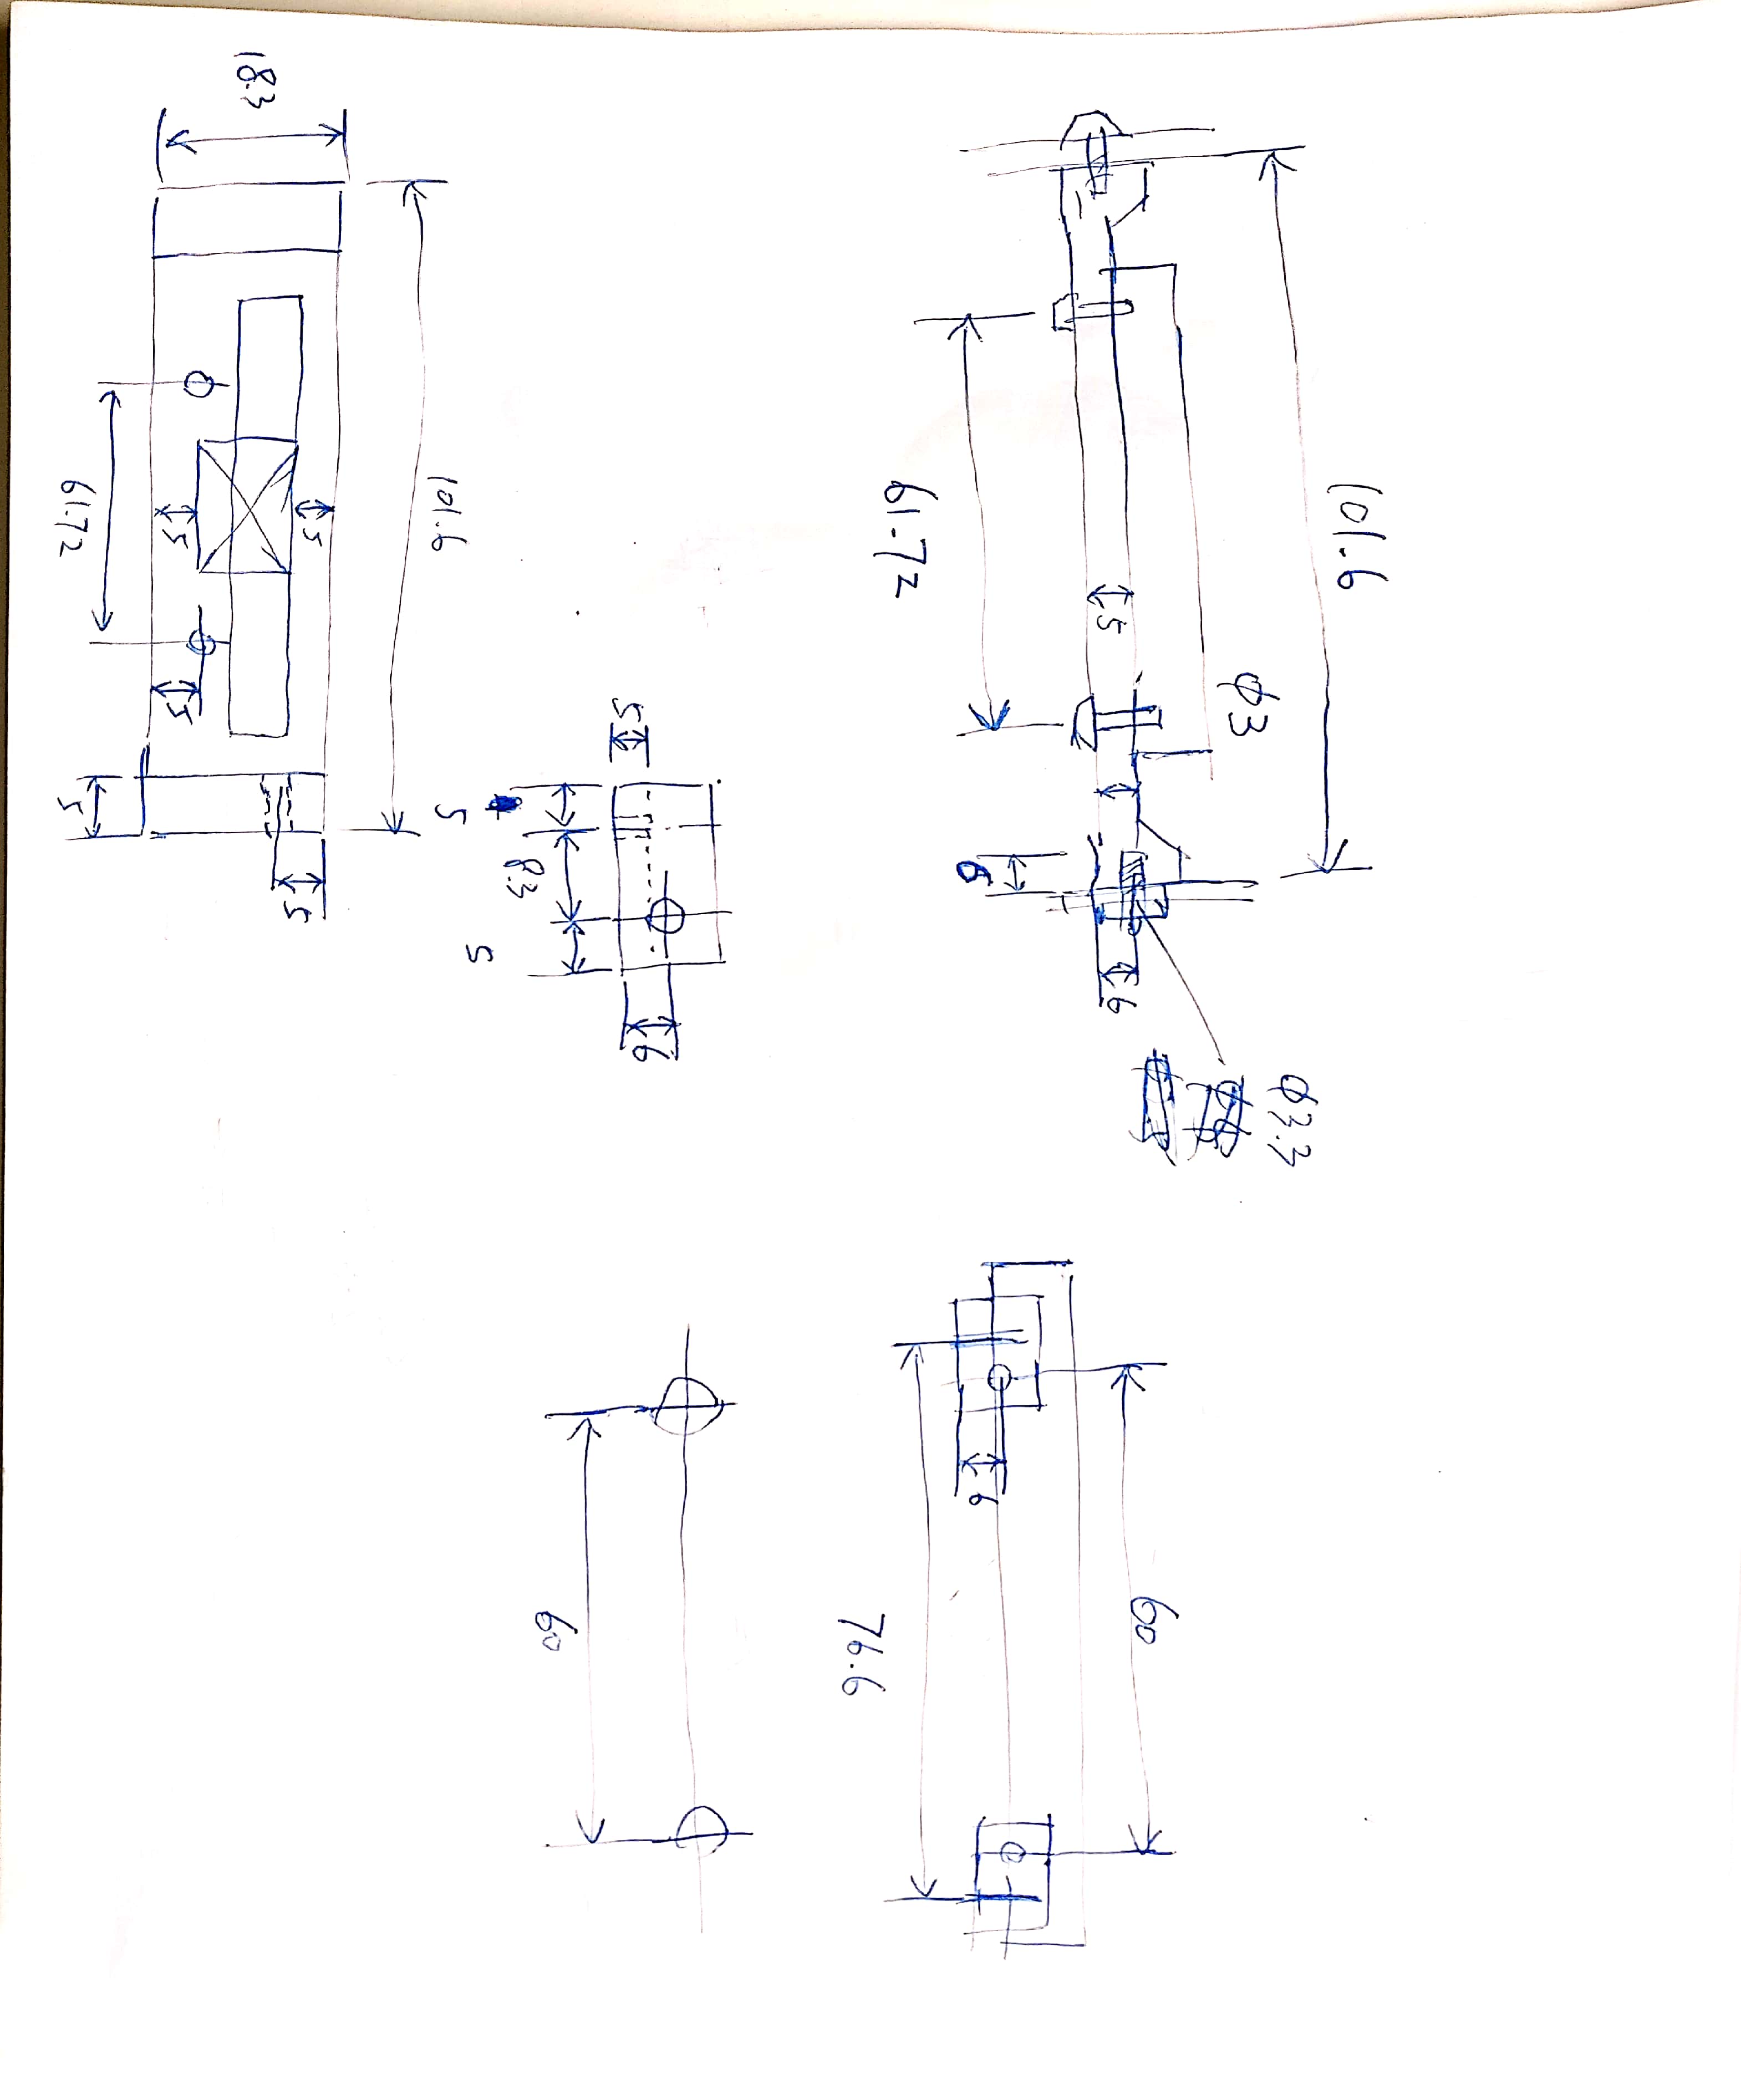 101.6
φ3
φ3.3
5
6
6
61.72
60
6
76.6
5
6
8.3
5
5
60
101.6
18.3
5
5
5
5
61.72
5